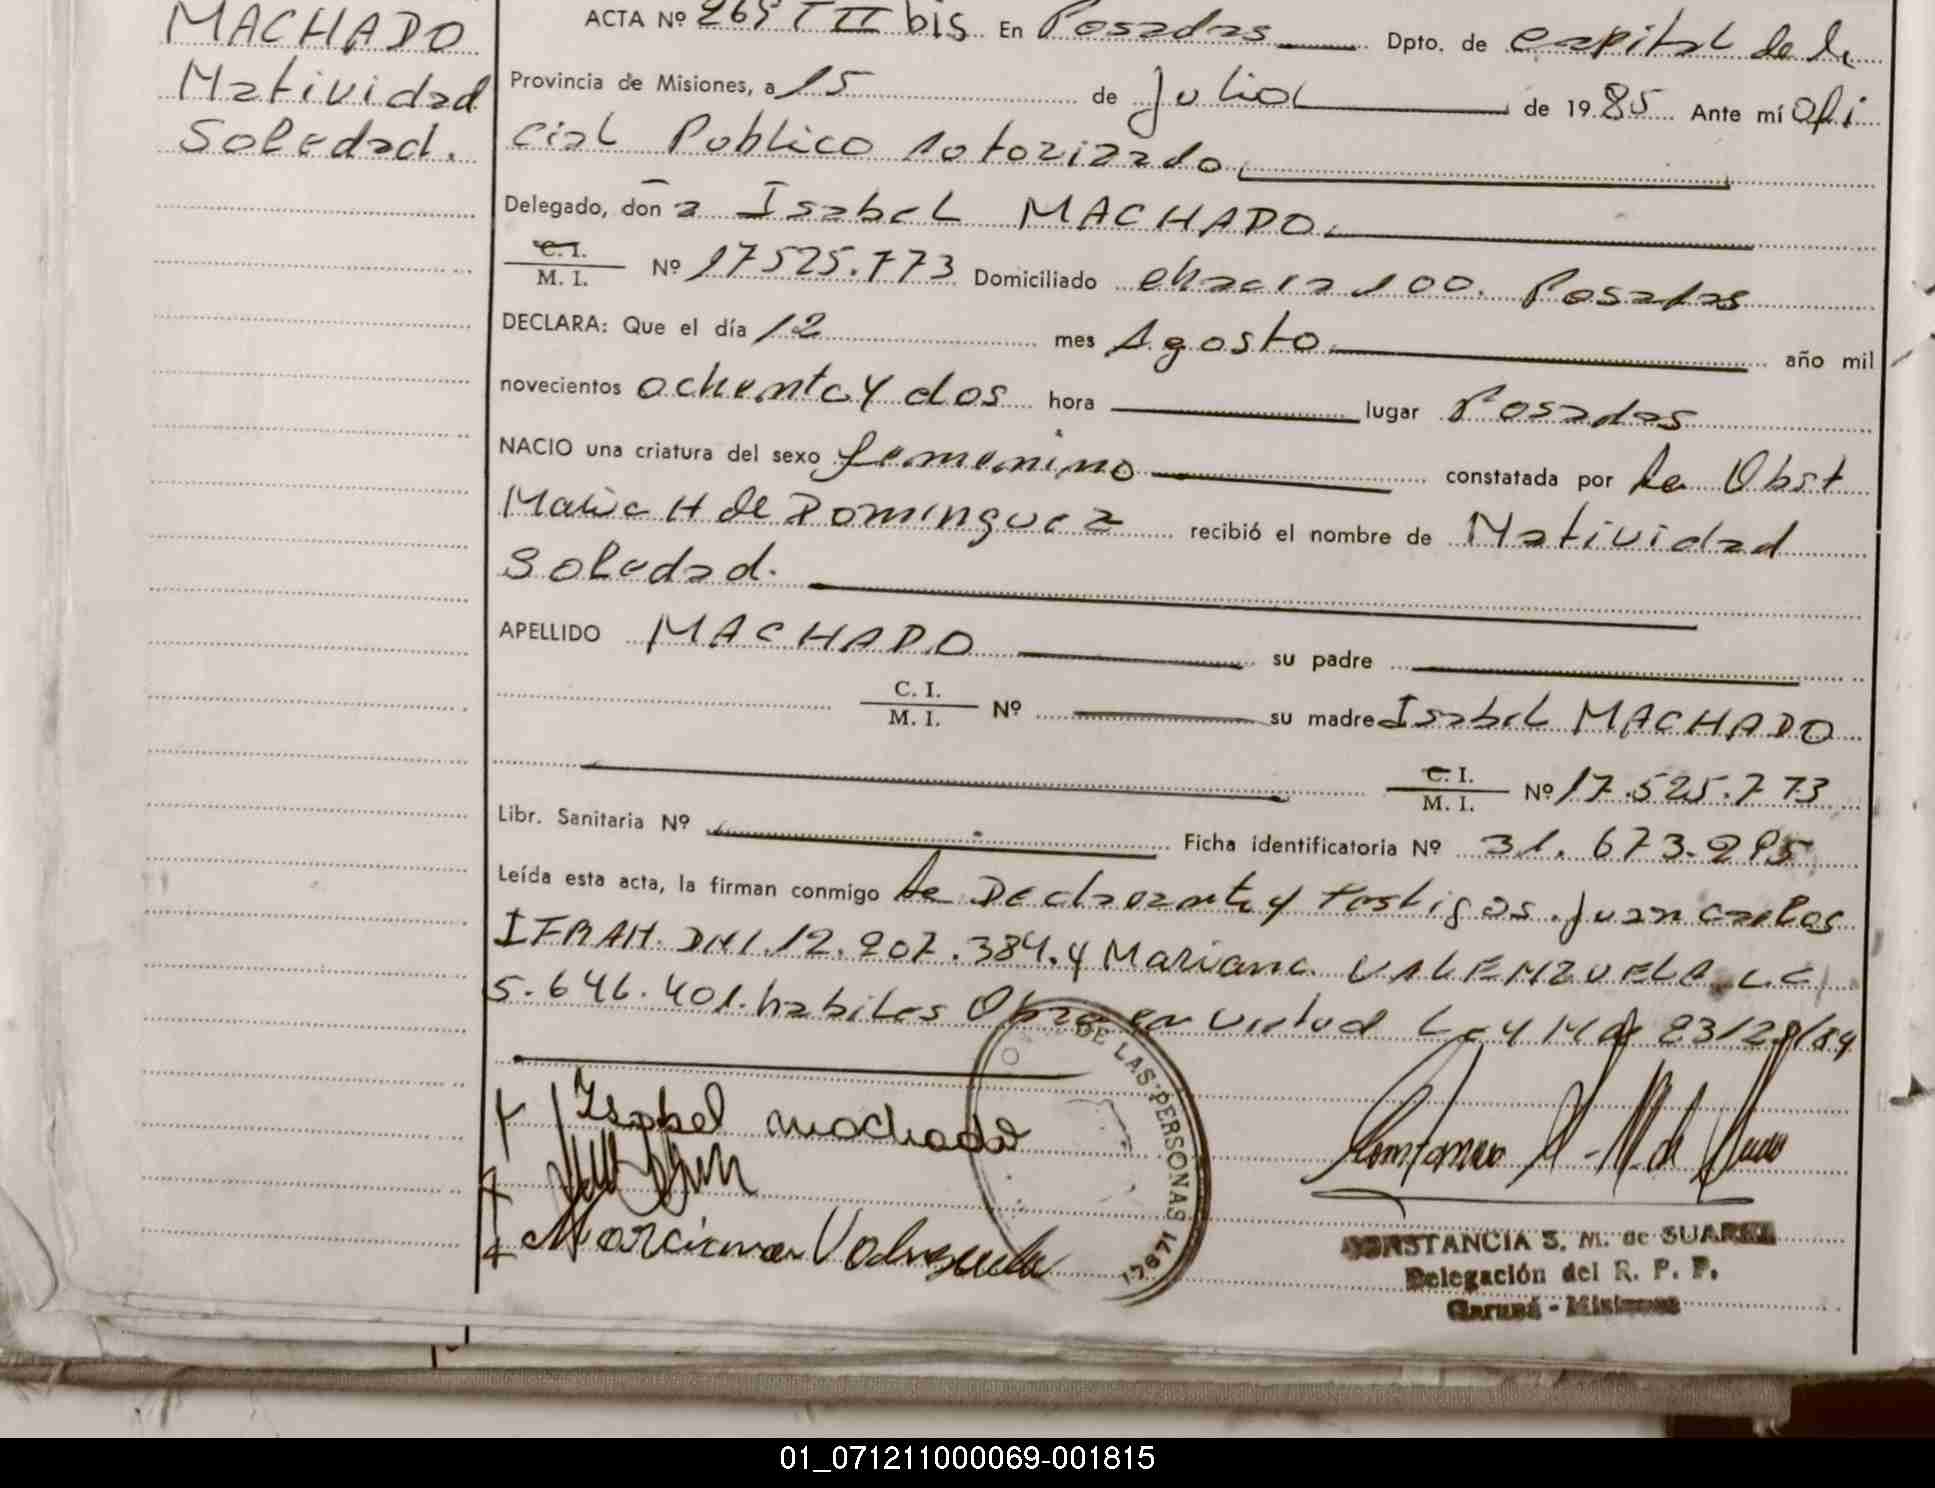 MACHADO
Natividad
Soledad.
ACTA Nº 269 T II bis En Posadas Dpto. de capital de la
Provincia de Misiones, a 15 de Julio de 1985 Ante mí Ofi
cial Publico autorizado
Delegado, don a Isabel MACHADO.
C. I.
M. I. Nº 17525.773 Domiciliado chacra 100. Posadas
DECLARA: Que el día 12 mes Agosto año mil
novecientos ochenta y dos hora lugar Posadas
NACIO una criatura del sexo femenino constatada por la Obst
Maria H de Dominguez recibió el nombre de Natividad
Soledad.
APELLIDO MACHADO su padre
C. I.
M. I. Nº su madre Isabel MACHADO
C. I.
M. I. Nº 17.525.773
Libr. Sanitaria Nº Ficha identificatoria Nº 31.673.295
Leída esta acta, la firman conmigo la Declarante y testigos. Juan Carlos
IFRAN. DNI.12.207.384. y Mariana VALENZUELA L.C
5.646.401. habiles Obra en virtud Ley 23/28/84
Isabel machado
DE LAS PERSONAS
17671
CONSTANCIA S. M. de SUAREZ
Delegación del R. P. P.
Garupá - Misiones
01_071211000069-001815